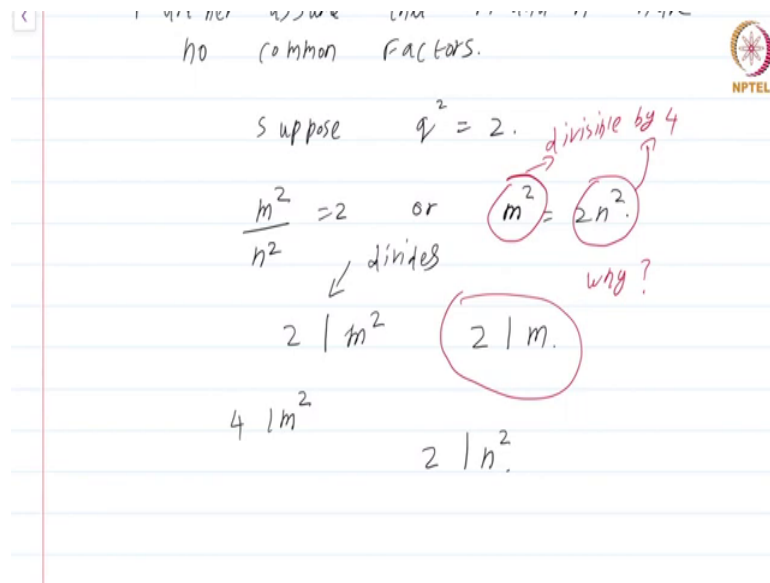 assume that
no common Factors.
NPTEL
suppose q² = 2.
divisible by 4
m²/n² = 2 or m² = 2n².
divides
why?
2 | m² 2 | m.
4 | m²
2 | n².